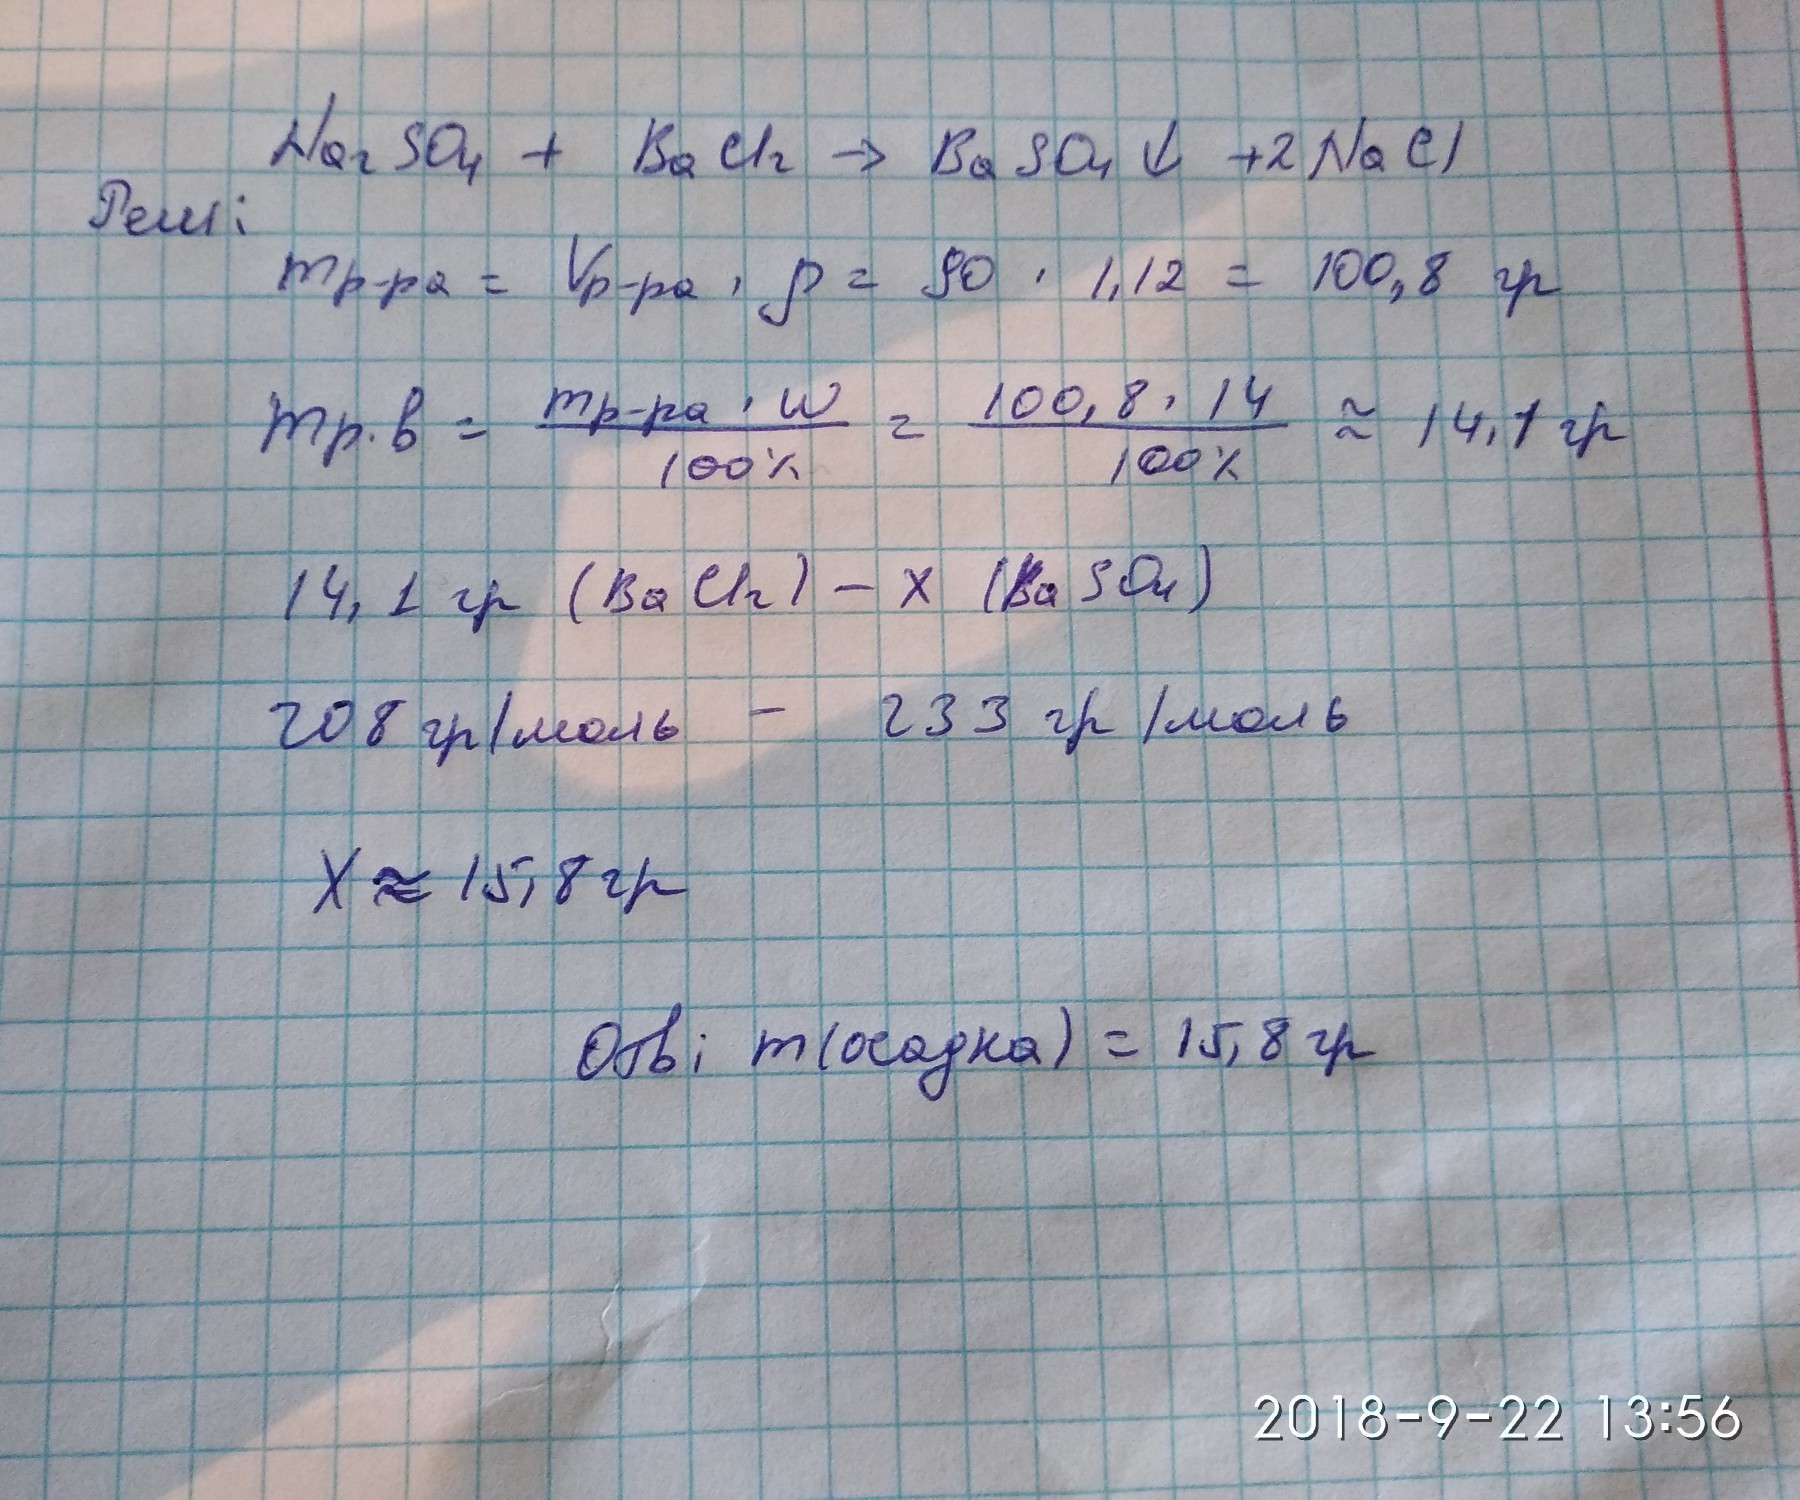 Na₂SO₄ + BaCl₂ → BaSO₄ ↓ +2NaCl
Реш:
mр-ра = Vр-ра · ρ = 90 · 1,12 = 100,8 гр
mр.в = mр-ра · W / 100% = 100,8 · 14 / 100% ≈ 14,1 гр
14,1 гр (BaCl₂) – X (BaSO₄)
208 гр/моль – 233 гр/моль
X ≈ 15,8 гр
Отв: m(осадка) = 15,8 гр
2018-9-22 13:56